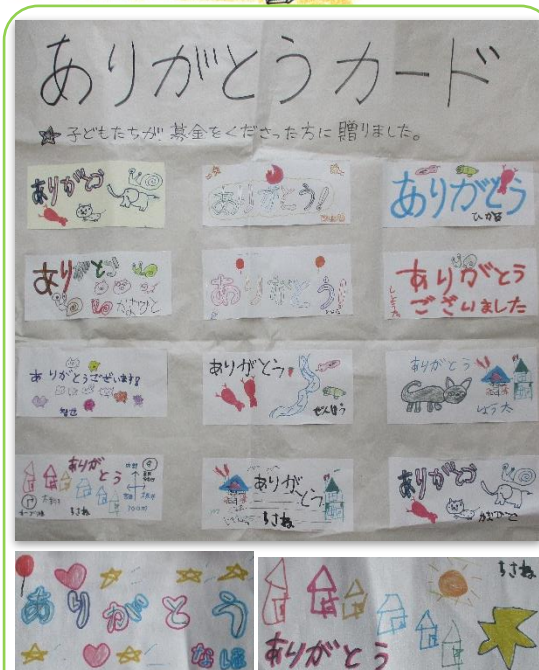 ありがとうカード
★子どもたちが募金をくださった方に贈りました。
ありがとう
ありがとう!
ありがとう
ひかる
ありがとう
ありがとう
ありがとう
ございました
ありがとうございます
ありがとう
ぜんぼう
ありがとう
しょう太
ありが
とう
ちさね
ありが
とう
ちさね
ありがとう
ありがとう
ちさね
ありがとう